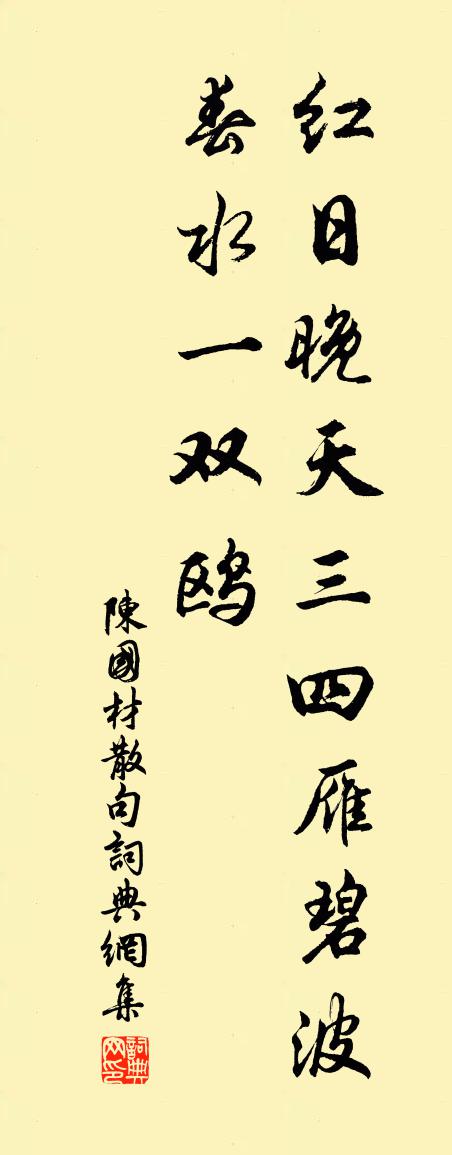 红日晚天三四雁碧波
春水一双鸥
陳國材散句詞典網集
詞典网印